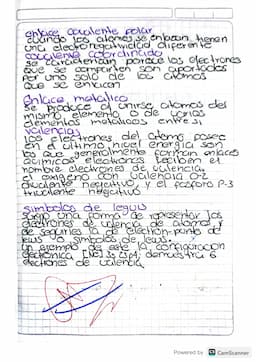 enlace covalente polar
cuando los atomos se enlazan tienen
una electronegatividad diferente
covalente coordinado
se caracterizan porque los electrones
que se comparten son aportados
por uno solo de los atomos
que se enlazan
enlace metalico
se produce al unirse atomos del
mismo elemento o de varios
elementos metalicos entre si
valencias
Los electrones del atomo posee
en el ultimo nivel energia son
los que generalmente forman enlaces
quimicos electrones reciben el
nombre electrones de valencia
el oxigeno con valencia O-2
divalente negativo, y el fosforo P-3
trivalente negativo
simbolos de lewis
surgio una forma de representar los
electrones de valencia de atomos y
de seguirles la de electron-punto de
lewis o simbolos de lewis.
un ejemplo de este la configuracion
electronica [Ne] 3s 23p4, demuestra 6
electrones de valencia
Powered by CamScanner